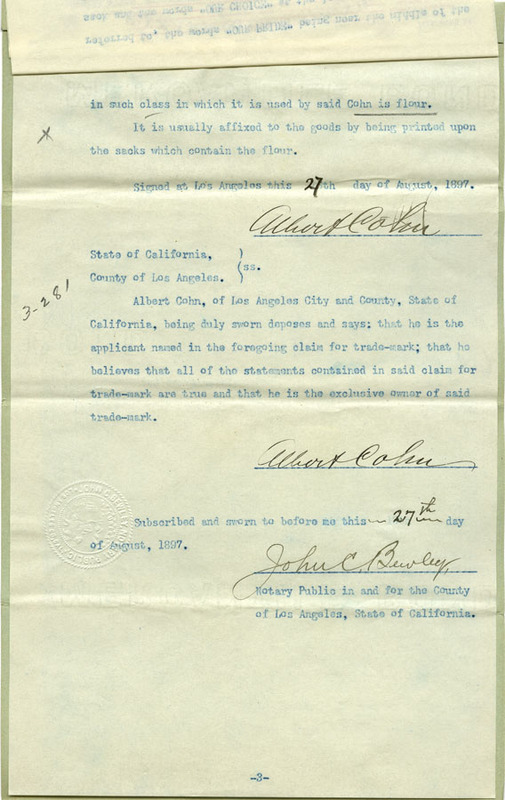 sack and the words "OUR CHOICE"
referred to, the words "OUR PRIDE" being near the middle of the
in such class in which it is used by said Cohn is flour.
It is usually affixed to the goods by being printed upon
the sacks which contain the flour.
Signed at Los Angeles this 27th day of August, 1897.
Albert Cohn
State of California, )
(ss.
County of Los Angeles. )
3-281
Albert Cohn, of Los Angeles City and County, State of
California, being duly sworn deposes and says: that he is the
applicant named in the foregoing claim for trade-mark; that he
believes that all of the statements contained in said claim for
trade-mark are true and that he is the exclusive owner of said
trade-mark.
Albert Cohn
Subscribed and sworn to before me this 27th day
of August, 1897.
John C. Bewley
Notary Public in and for the County
of Los Angeles, State of California.
-3-